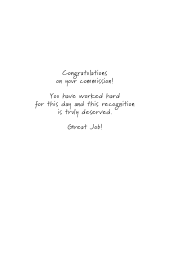 Congratulations
on your commission!
You have worked hard
for this day and this recognition
is truly deserved.
Great Job!